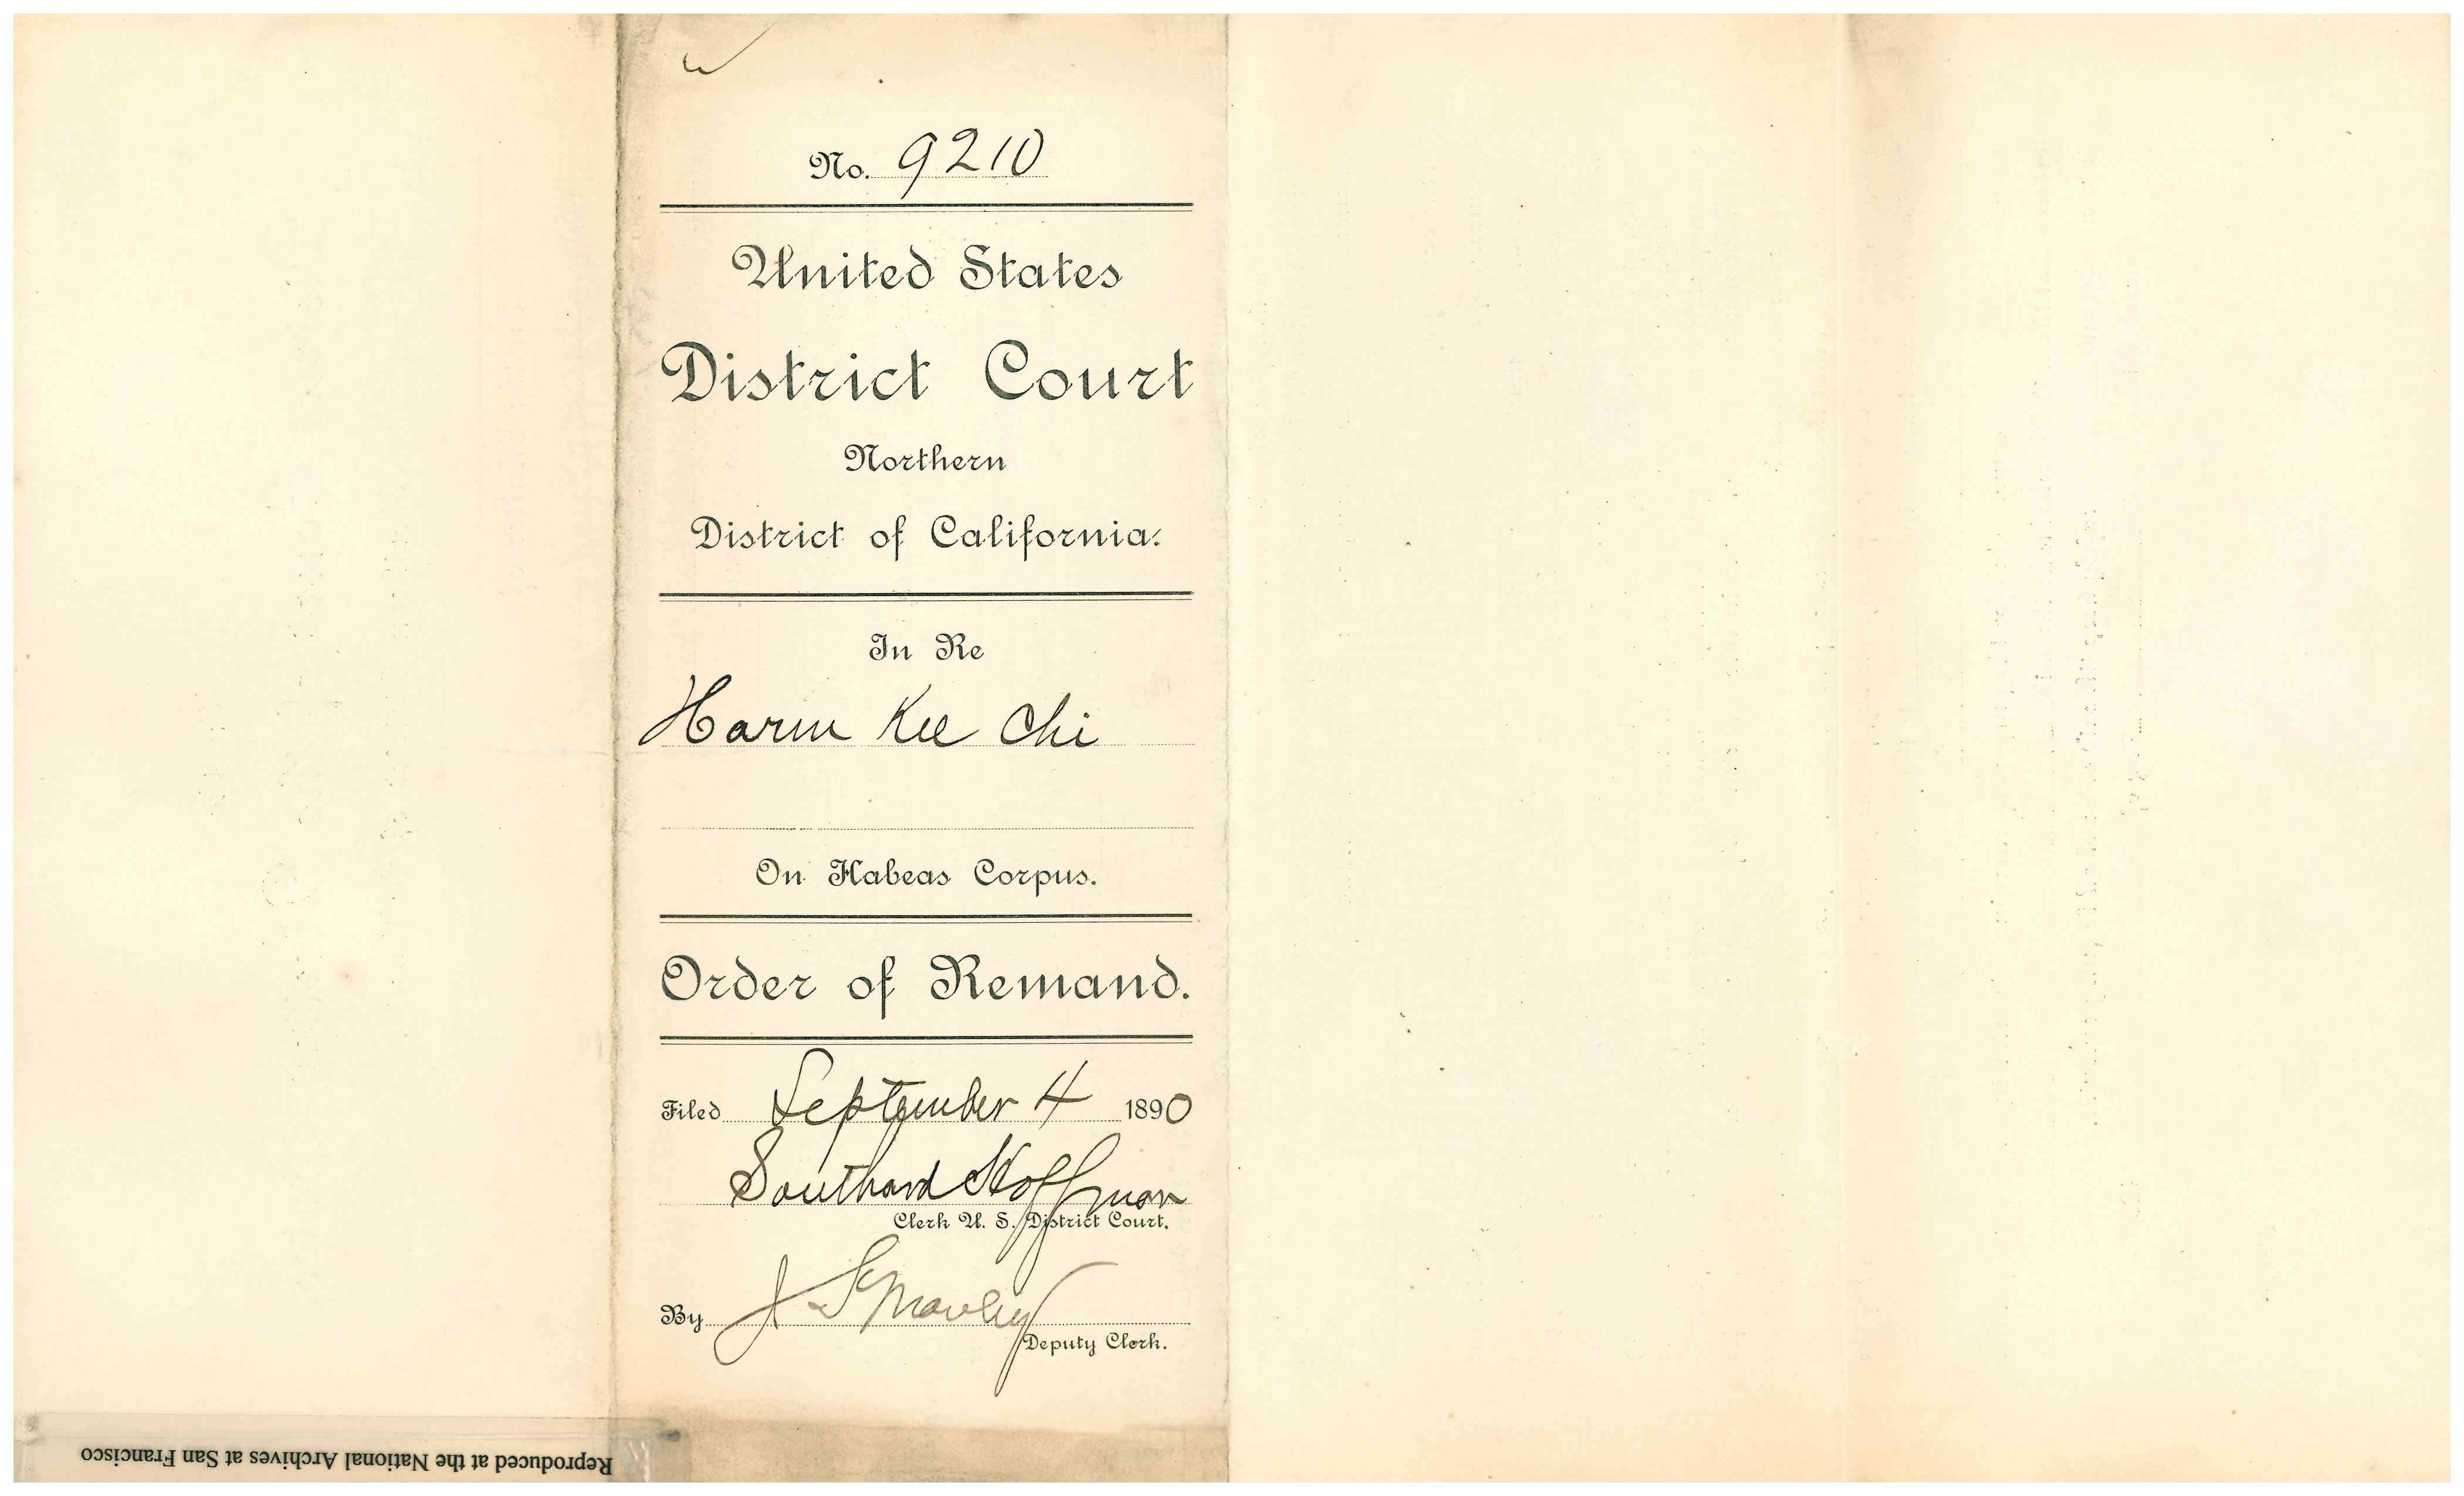 No. 9210
United States
District Court
Northern
District of California.
In Re
Harm Kee Chi
On Habeas Corpus.
Order of Remand.
Filed September 4 1890
Southard Hoffman
Clerk U. S. District Court.
By J S Manley
Deputy Clerk.
Reproduced at the National Archives at San Francisco